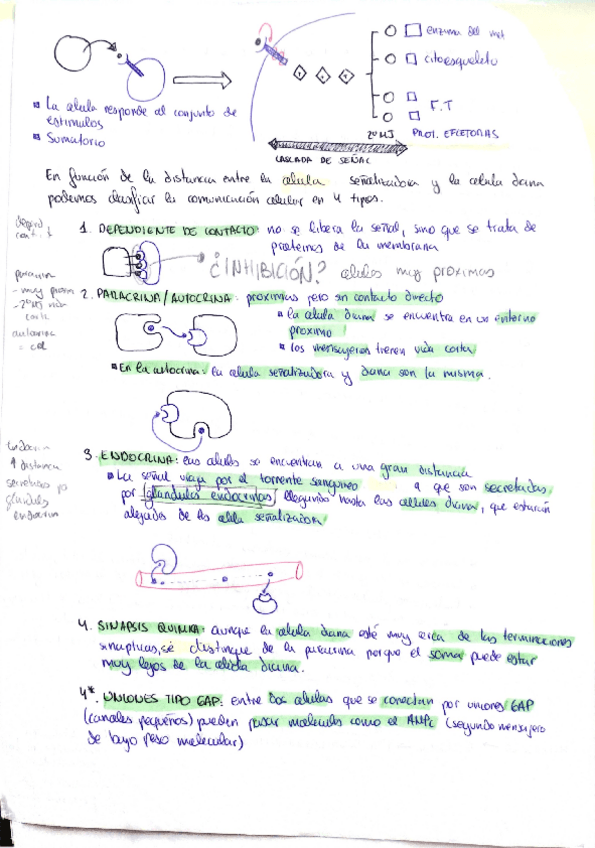 enzima del met
citoesqueleto
F.T
2º MJ PROT. EFECTORAS
CASCADA DE SEÑAL
La celula responde al conjunto de
estimulos
Sumatorio
En función de la distancia entre la celula señalizadora y la celula diana
podemos clasificar la comunicación celular en 4 tipos.
1. DEPENDIENTE DE CONTACTO: no se libera la señal, sino que se trata de
proteinas de la membrana
¿INHIBICIÓN? celulas muy proximas
2. PARACRINA/AUTOCRINA: proximas pero sin contacto directo
la celula diana se encuentra en un entorno
proximo
los mensajeros tienen vida corta
En la autocrina: la celula señalizadora y diana son la misma.
paracrina
- muy proxim
corta
autocrina
= cel
3. ENDOCRINA: las celulas se encuentran a una gran distancia
La señal viaja por el torrente sanguineo a que son secretadas
por glandulas endocrinas llegando hasta las celulas diana, que estarán
alejadas de la célula señalizadora
endocrin
distancia
secretadas po
glandulas
endocrin
4. SINAPSIS QUIMICA: aunque la celula diana esté muy cerca de las terminaciones
sinapticas, se distingue de la paracrina porque el soma puede estar
muy lejos de la celula diana.
4*. UNIONES TIPO GAP: entre dos celulas que se conectan por uniones GAP
(canales pequeños) pueden pasar moleculas como el AMPc (segundo mensajero
de bajo peso molecular)